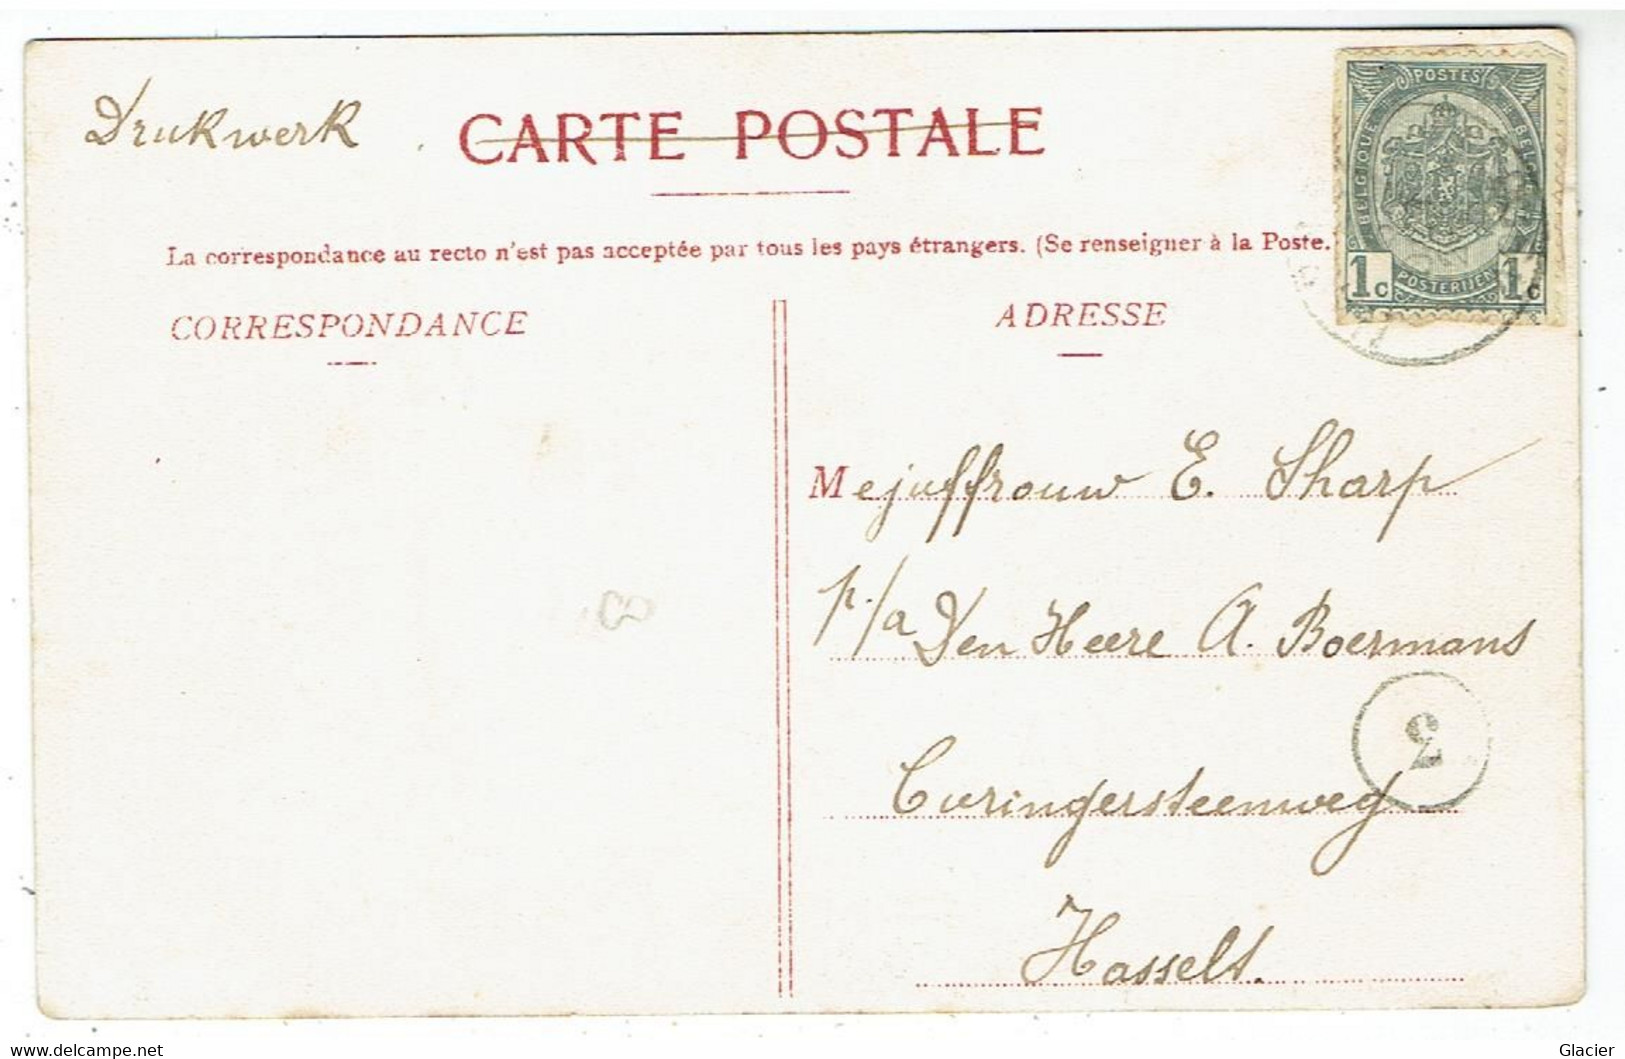 Drukwerk
CARTE POSTALE
La correspondance au recto n'est pas acceptée par tous les pays étrangers. (Se renseigner à la Poste.
CORRESPONDANCE
ADRESSE
POSTES
BELGIQUE
POSTERIJEN
1c 1c
Mejuffrouw E. Sharp
p./a Den Heere A. Boermans
2
Curingersteenweg
Hasselt.
www.delcampe.net
Glacier